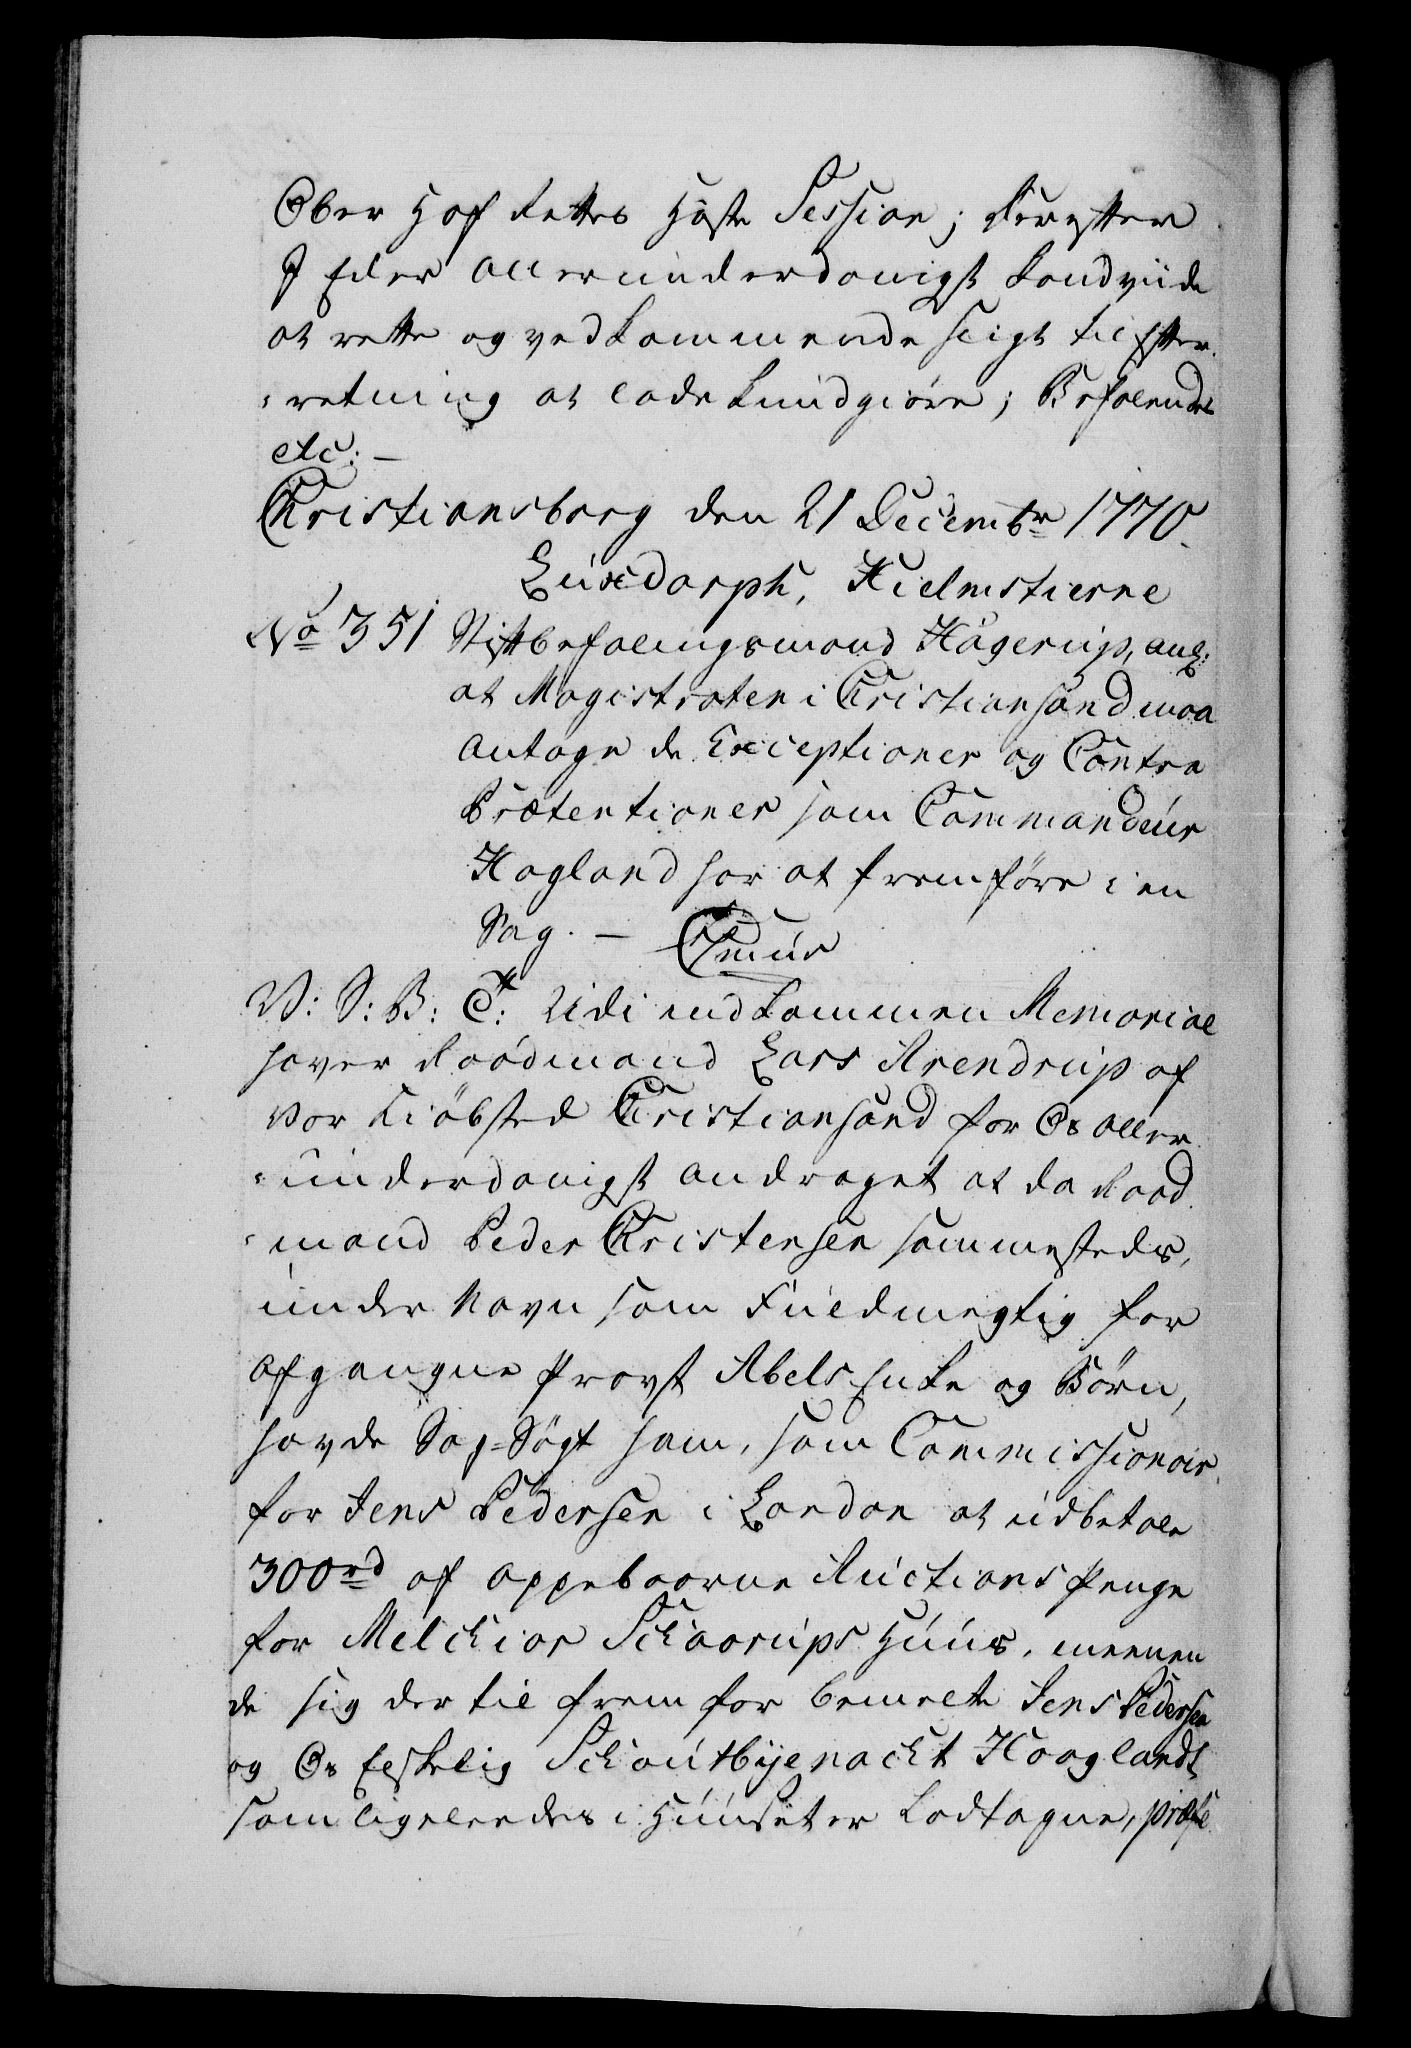 Ober Hof Rettes Høste Session; Derefter
I Eder allerunderdanigst kand viide
at rette og vedkommende sligt til Efter-
-retning at lade kundgiøre; Befalendes
etc: —
Christiansborg den 21 Decembr 1770.
Luxdorph, Hielmstierne
No 351 Stiftbefalingsmand Hagerup, anl:
at Magistraten i Christiansand maa
antage de Exceptioner og Contra
Prætentioner som Commandeur
Hagland har at fremføre i en
Sag. —
V: S: B: Ct: Udi indkommen Memorial
haver Raadmand Lars Arendrup af
Vor Kiøbsted Christiansand for Os aller-
-underdanigst andraget at da Raad-
-mand Peder Christensen sammesteds,
under Navn som Fuldmegtig for
afgangne Provst Abels Enke og Børn,
havde Sag-Søgt ham, som Commissionair
for Jens Pedersen i London at udbetale
300rd af oppebaarne Auctions Penge
for Melchior Schaarups Huus, meenen
de sig dertil frem for bemelte Jens Pedersen
og Os Elskelig Schoutbijenacht Hoaglandt,
som ligeleedes i Huuset er Lodtagne, præfe